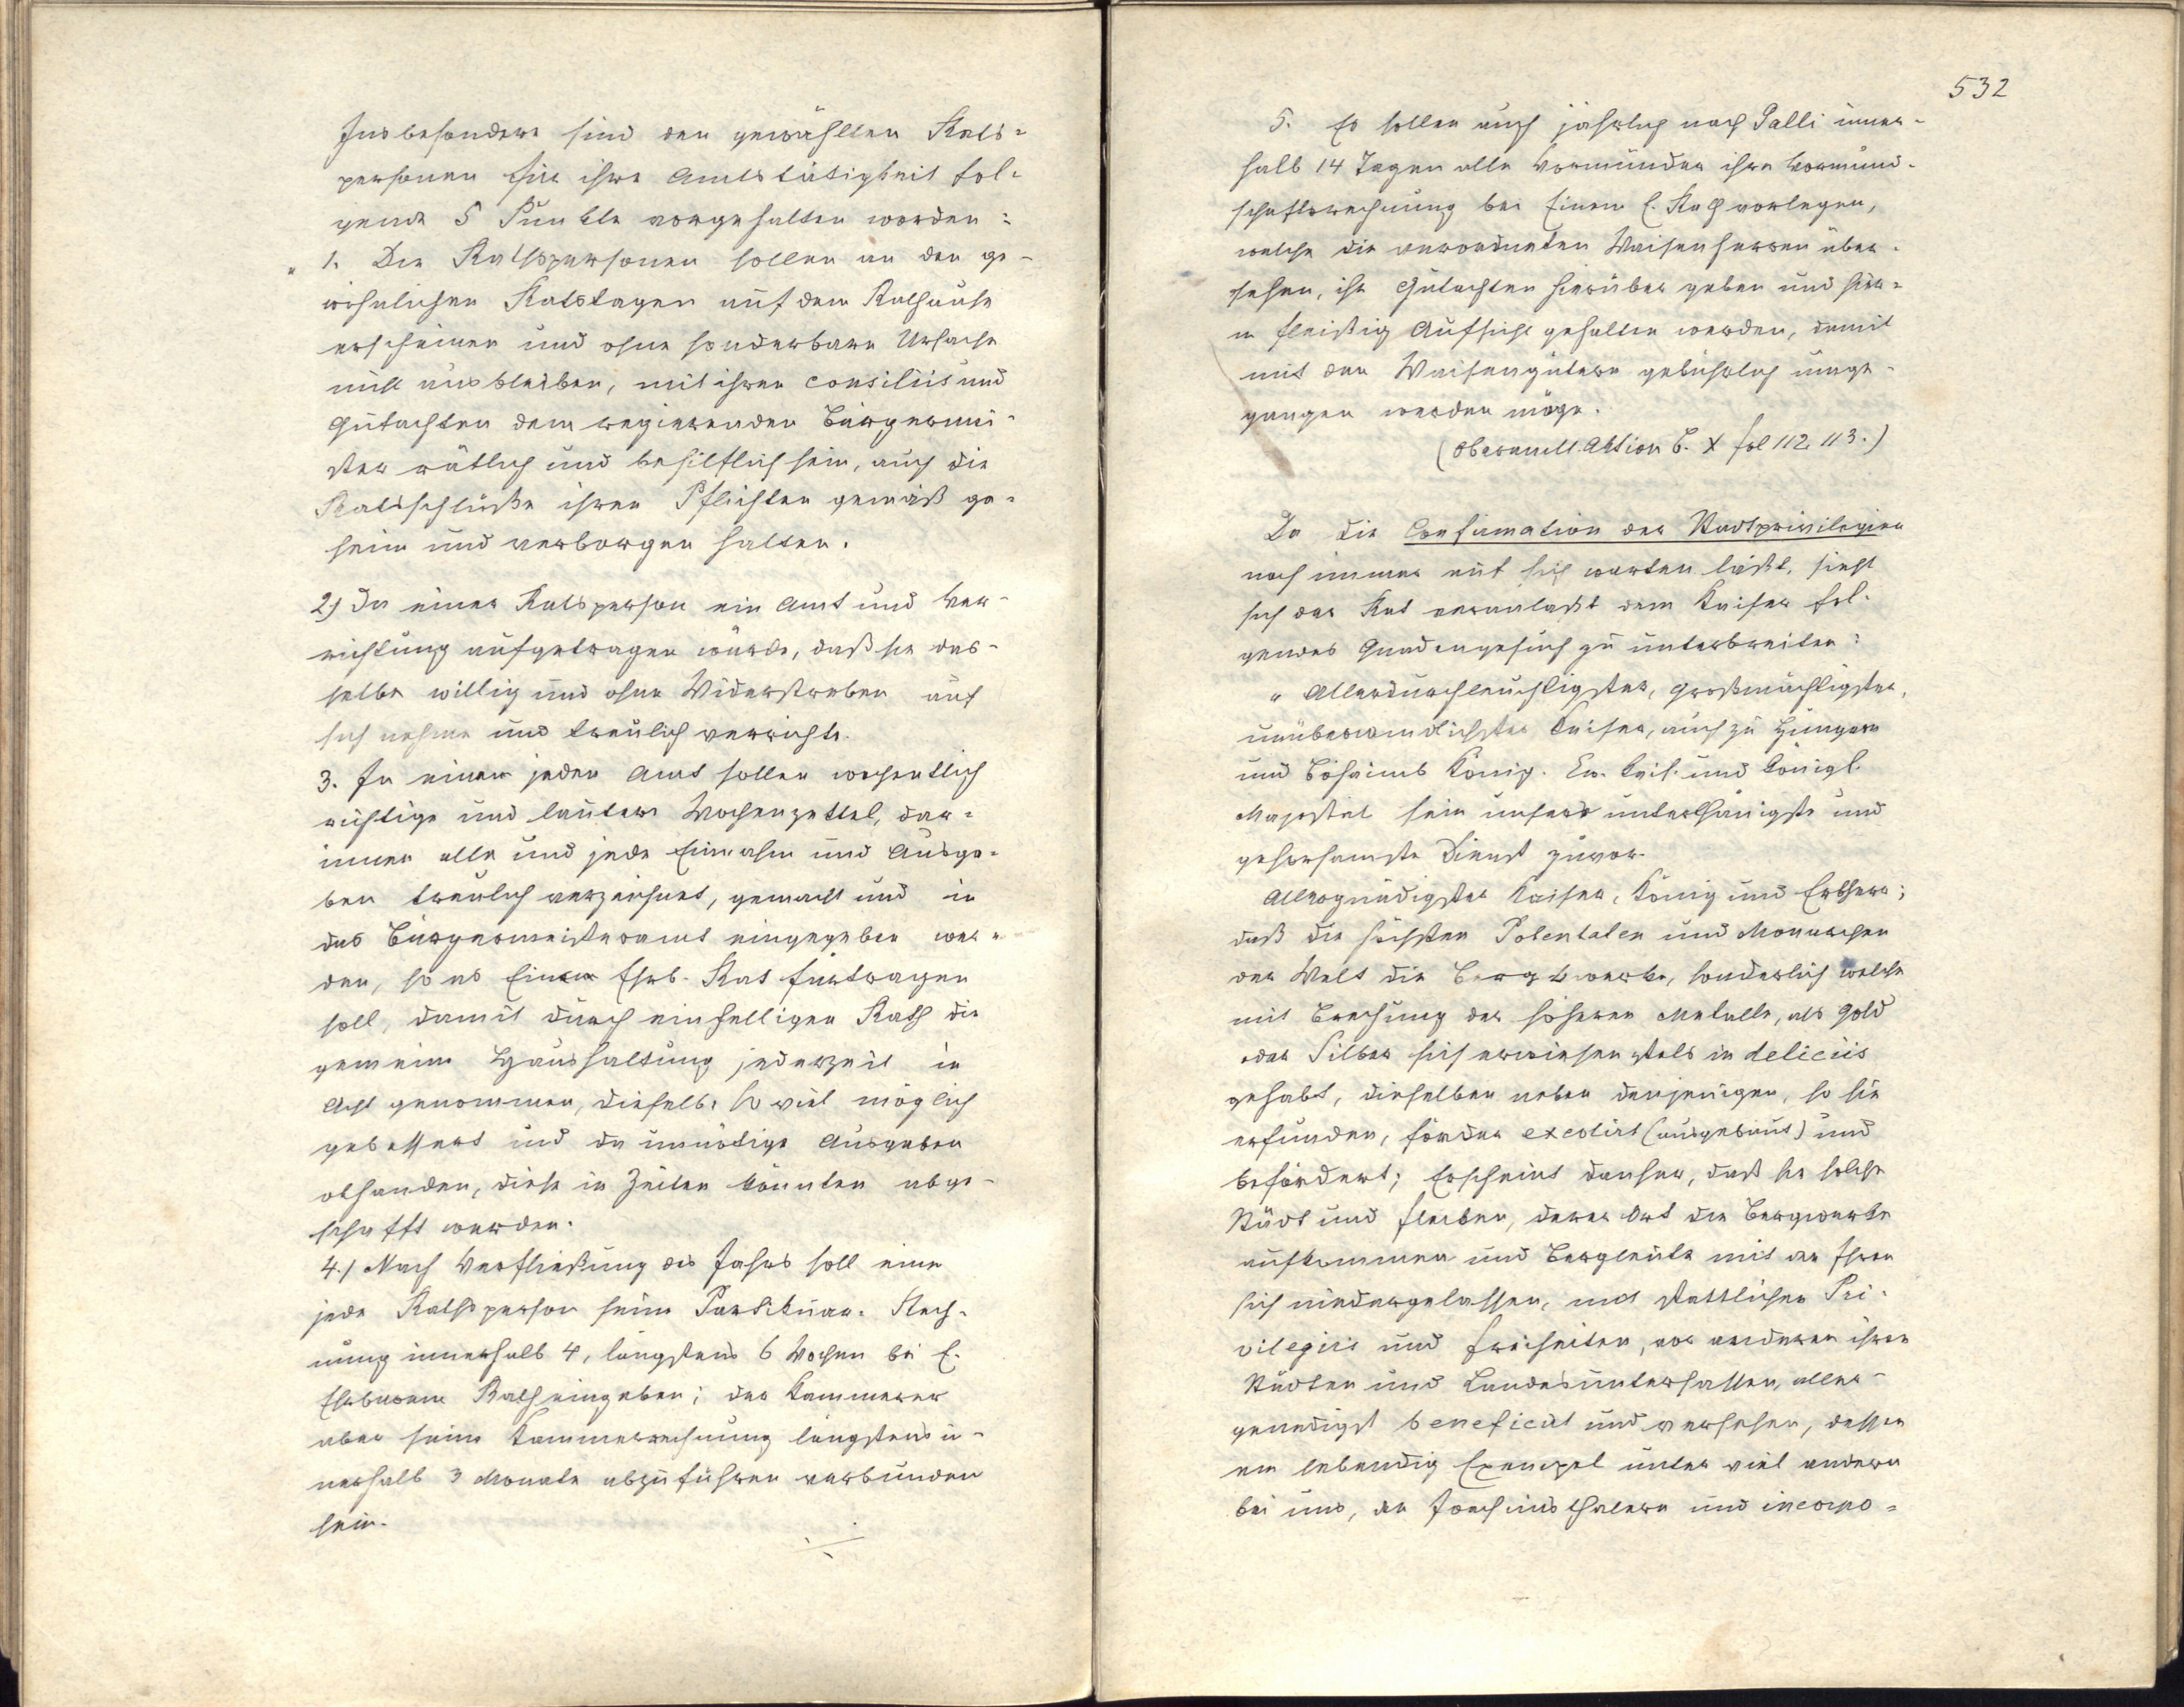 Insbesondere sind den gewählten Rats=
personen für ihre Amtstätigkeit fol=
gende 5 Punkte vorgehalten worden:
„1. Die Rathspersonen sollen an den ge-
wöhnlichen Ratstagen auf dem Rathause
erscheinen und ohne sonderbare Ursache
nicht ausbleiben, mit ihren consiliis und
Gutachten dem regierenden Bürgermei-
ster rätlich und behilflich sein, auch die
Ratsschlüße ihren Pflichten gemäß ge=
heim und verborgen halten.
2.) Da einer Ratsperson ein Amt und Ver-
richtung aufgetragen würde, daß sie das-
selbe willig und ohne Widerstreben auf
sich nehme und treulich verrichte.
3. In einem jeden Amt sollen wochentlich
richtige und lautere Wochenzettel, dar=
innen alle und jede Einnahm und Ausga=
ben treulich verzeichnet, gemacht und in
das Bürgermeisteramt eingegeben wer=
den, so es Einem Ehrb. Rat fürtragen
soll, damit durch einhelligen Rath die
gemeine Haushaltung jederzeit in
Acht genommen, dieselbe so viel möglich
gebessert und da unnötige Ausgaben
obhanden, diese in Zeiten könnten abge-
schafft werden.
4.) Nach Verfließung des Jahrs soll eine
jede Rathsperson seine Partikular-Rech-
nung innerhalb 4, längstens 6 Wochen bei E.
Ehrbarem Rath eingeben; der Kammerer
aber seine Kammerrechnung längstens in-
nerhalb 3 Monate abzuführen verbunden
sein.
532
5. Es sollen auch jährlich nach Galli inner-
halb 14 Tagen alle Vormünder ihre Vormund-
schaftsrechnung bei Einem E. Rath vorlegen,
welche die verordneten Waisenherren über-
sehen, ihr Gutachten hierüber geben und hier=
in fleißig Aufsicht gehalten werden, damit
mit den Waisengütern gebührlich umge-
gangen werden möge.
(Oberamtl. Aktion B. X fol 112, 113.)
Da die Confirmation der Stadtprivilegien
noch immer auf sich warten läßt, sieht
sich der Rat veranlaßt dem Kaiser fol-
gendes Gnadengesuch zu unterbreiten:
„Allerdurchleuchtigster, großmächtigster,
unüberwindlichster Kaiser, auch zu Hungern
und Böhaimb König. Ew. Kais. und Königl.
Majestät sein unsere unterthänigste und
gehorsamste Dienst zuvor.
Allergnädigster Kaiser, König und Erbherr;
daß die höchsten Potentaten und Monarchen
der Welt die Bergkwerke, sonderlich welche
mit Brechung der höheren Metalle, als Gold
oder Silber sich erwiesen stets in deliciis
gehabt, dieselben neben denjenigen, so sie
erfunden, förder excolirt (ausgebaut) und
befördert; Erscheint danher, daß sie solche
Städt und Flecken, derer Ort die Bergwerke
aufkommen und Bergleute mit den Ihren
sich niedergelassen, mit stattlichen Pri-
vilegiis und Freiheiten, vor anderen ihren
Städten und Landesunterfassen, aller-
genedigst beneficiirt und versehen, dessen
ein lebendig Exempel unter viel andern
bei uns, den Joachimsthalern und incorpo=